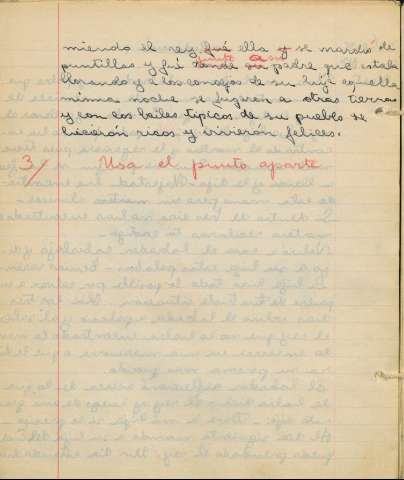 miendo el rey qué ella y se marchó de
puntillas y fué donde su padre que estaba
junto a su
llorando y a los consejos de su hija aquella
misma noche se fugaron a otras tierras
y con los bailes típicos de su pueblo se
hicieron ricos y vivieron felices.
3/ Usa el punto aparte